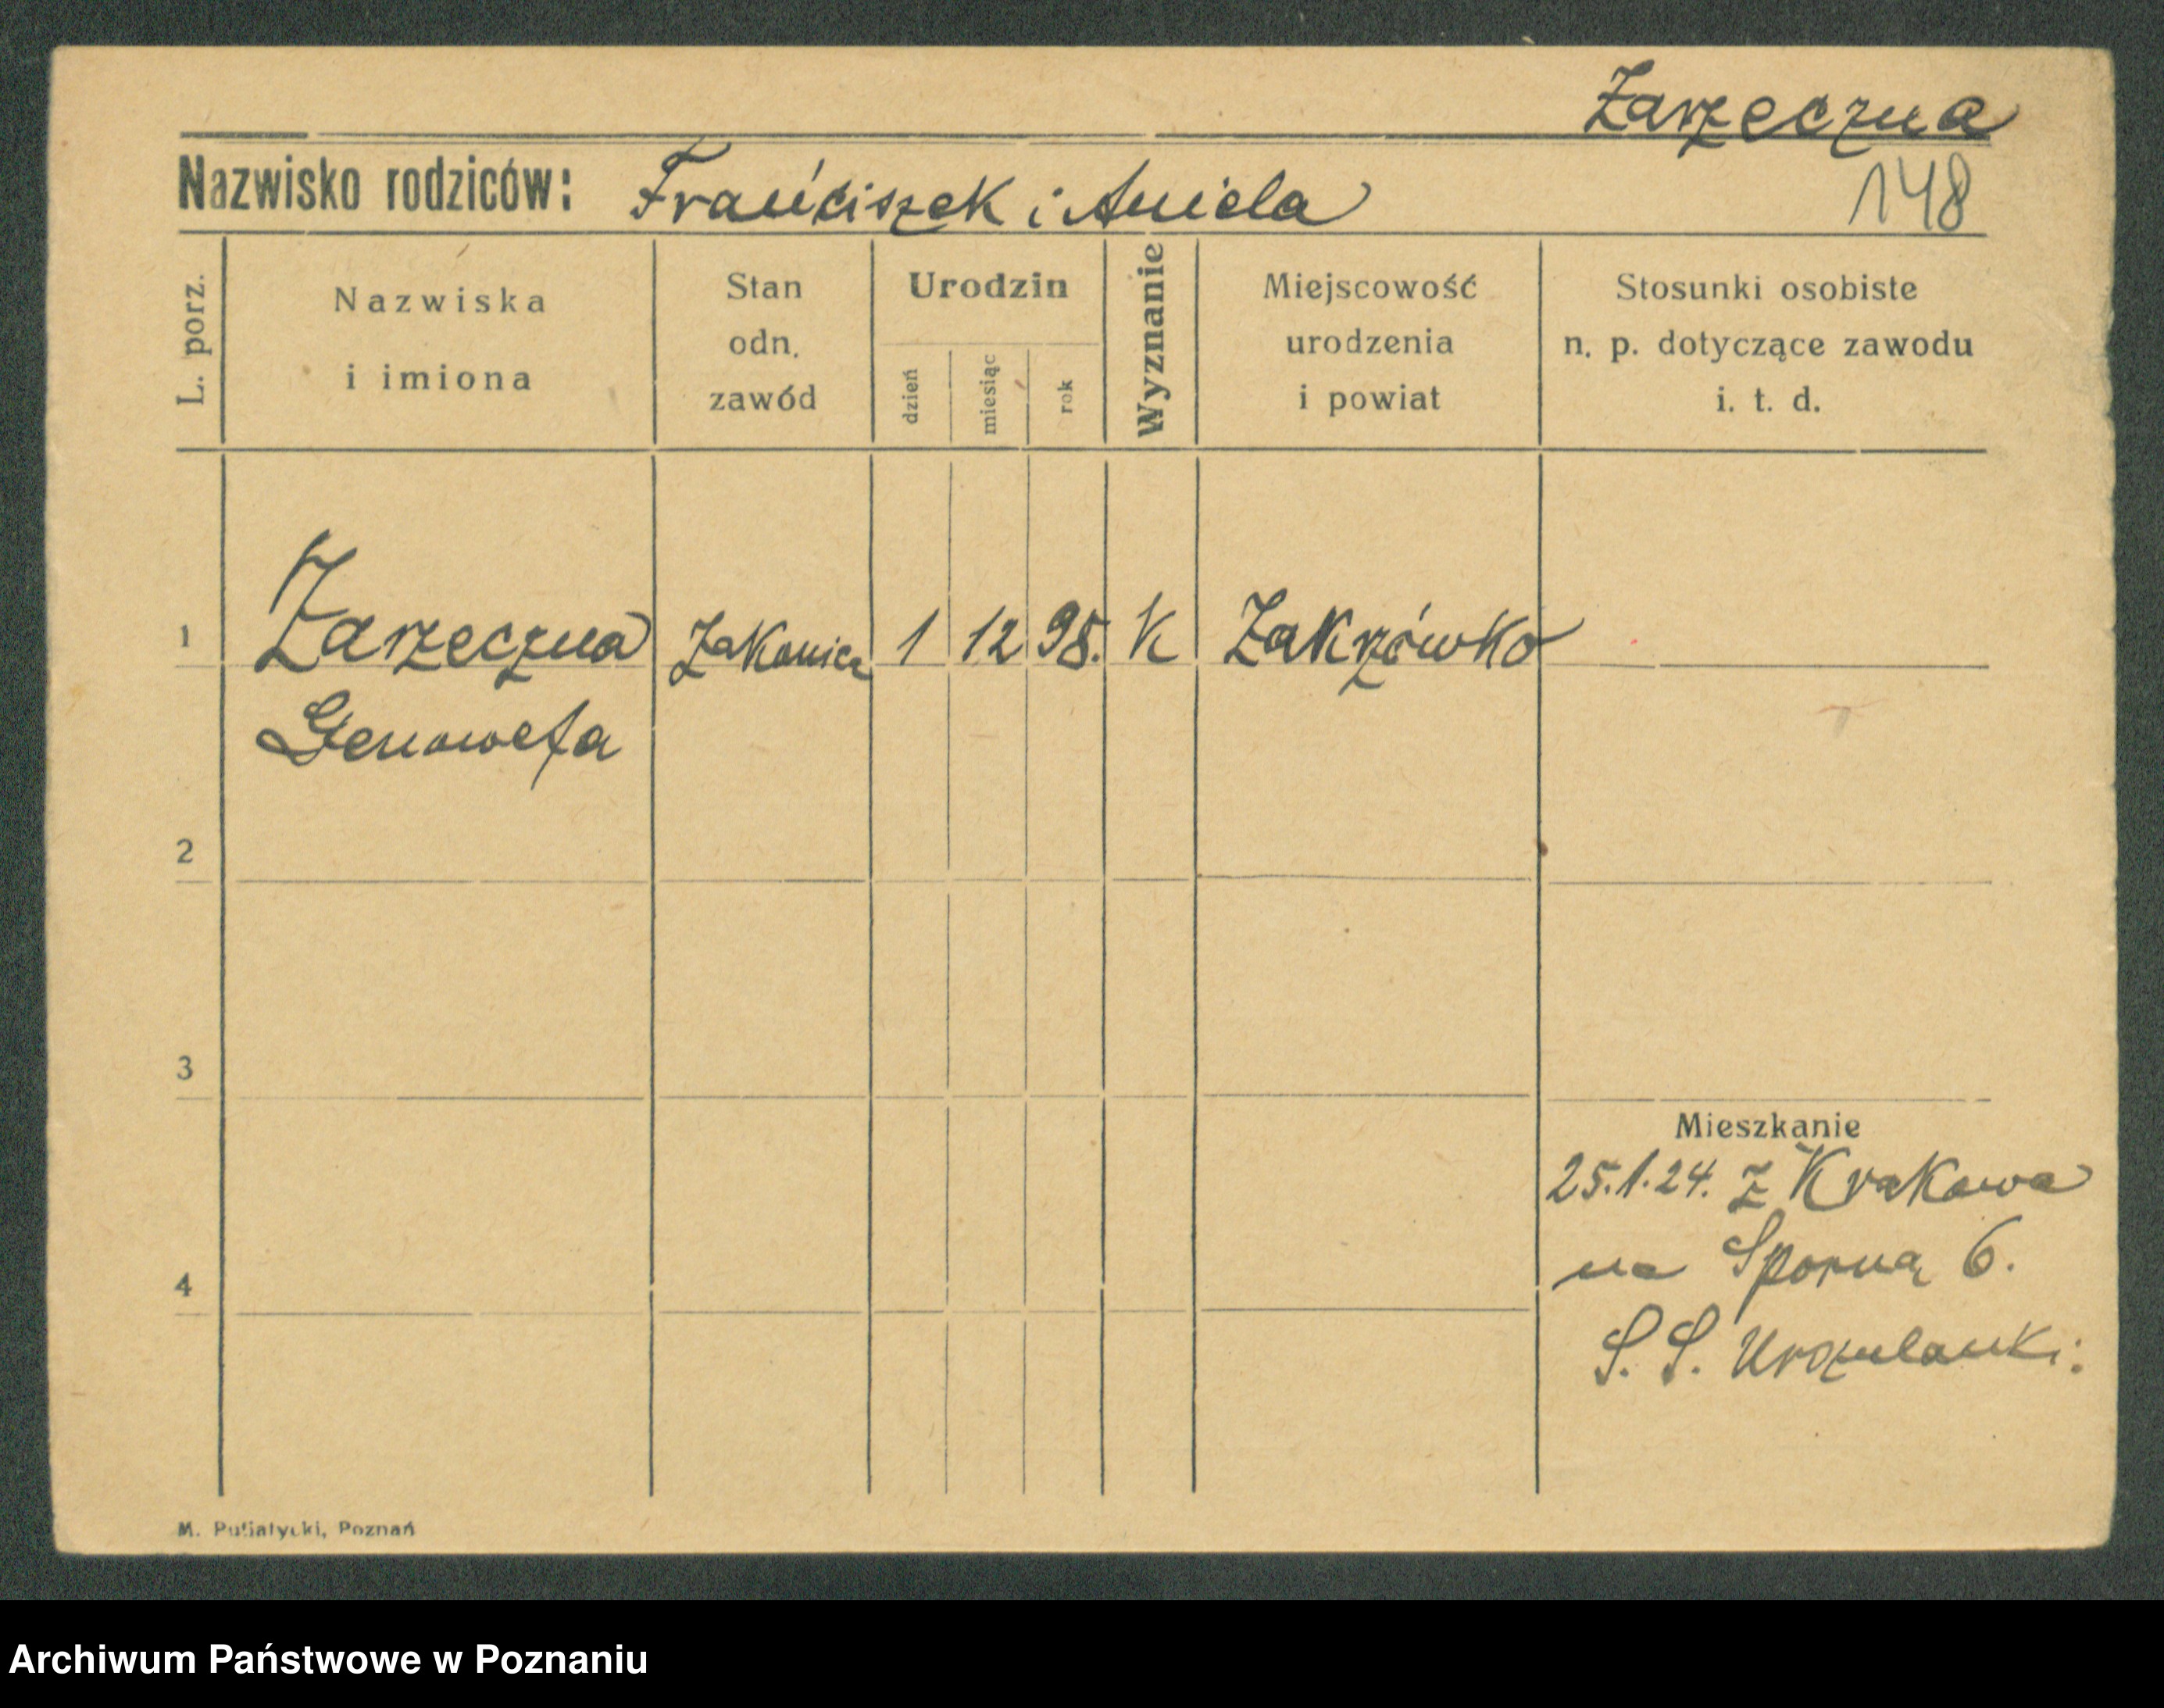 Zarzeczna
Nazwisko rodziców: Franciszek i Aniela
148
L. porz.
Nazwiska
i imiona
Stan
odn.
zawód
Urodzin
dzień
miesiąc
rok
Wyznanie
Miejscowość
urodzenia
i powiat
Stosunki osobiste
n. p. dotyczące zawodu
i. t. d.
1 Zarzeczna Zakonica 1 12 98. K Zakrzówko
Genowefa
2
3
Mieszkanie
25.1.24. z Krakowa
4
na Sporną 6.
S. S. Urszulanki.
M. Putiatycki, Poznań
Archiwum Państwowe w Poznaniu